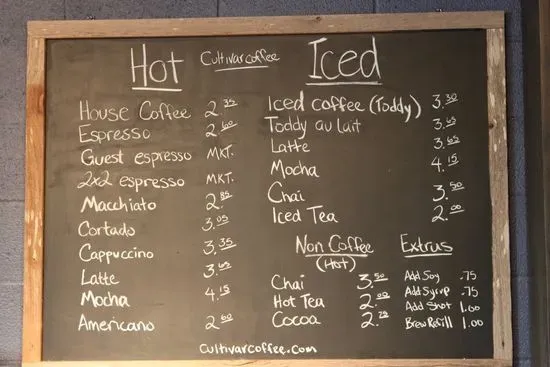 Hot
Cultivarcoffee
Iced
House Coffee 2.35
Espresso 2.60
Guest espresso MKT.
2x2 espresso MKT.
Macchiato 2.85
Cortado 3.05
Cappuccino 3.35
Latte 3.65
Mocha 4.15
Americano 2.60
Iced coffee (Toddy) 3.30
Toddy au lait 3.65
Latte 3.65
Mocha 4.15
Chai 3.50
Iced Tea 2.00
Non Coffee
(Hot)
Chai 3.50
Hot Tea 2.00
Cocoa 2.75
Extras
Add Soy .75
Add Syrup .75
Add Shot 1.00
Brew Refill 1.00
cultivarcoffee.com